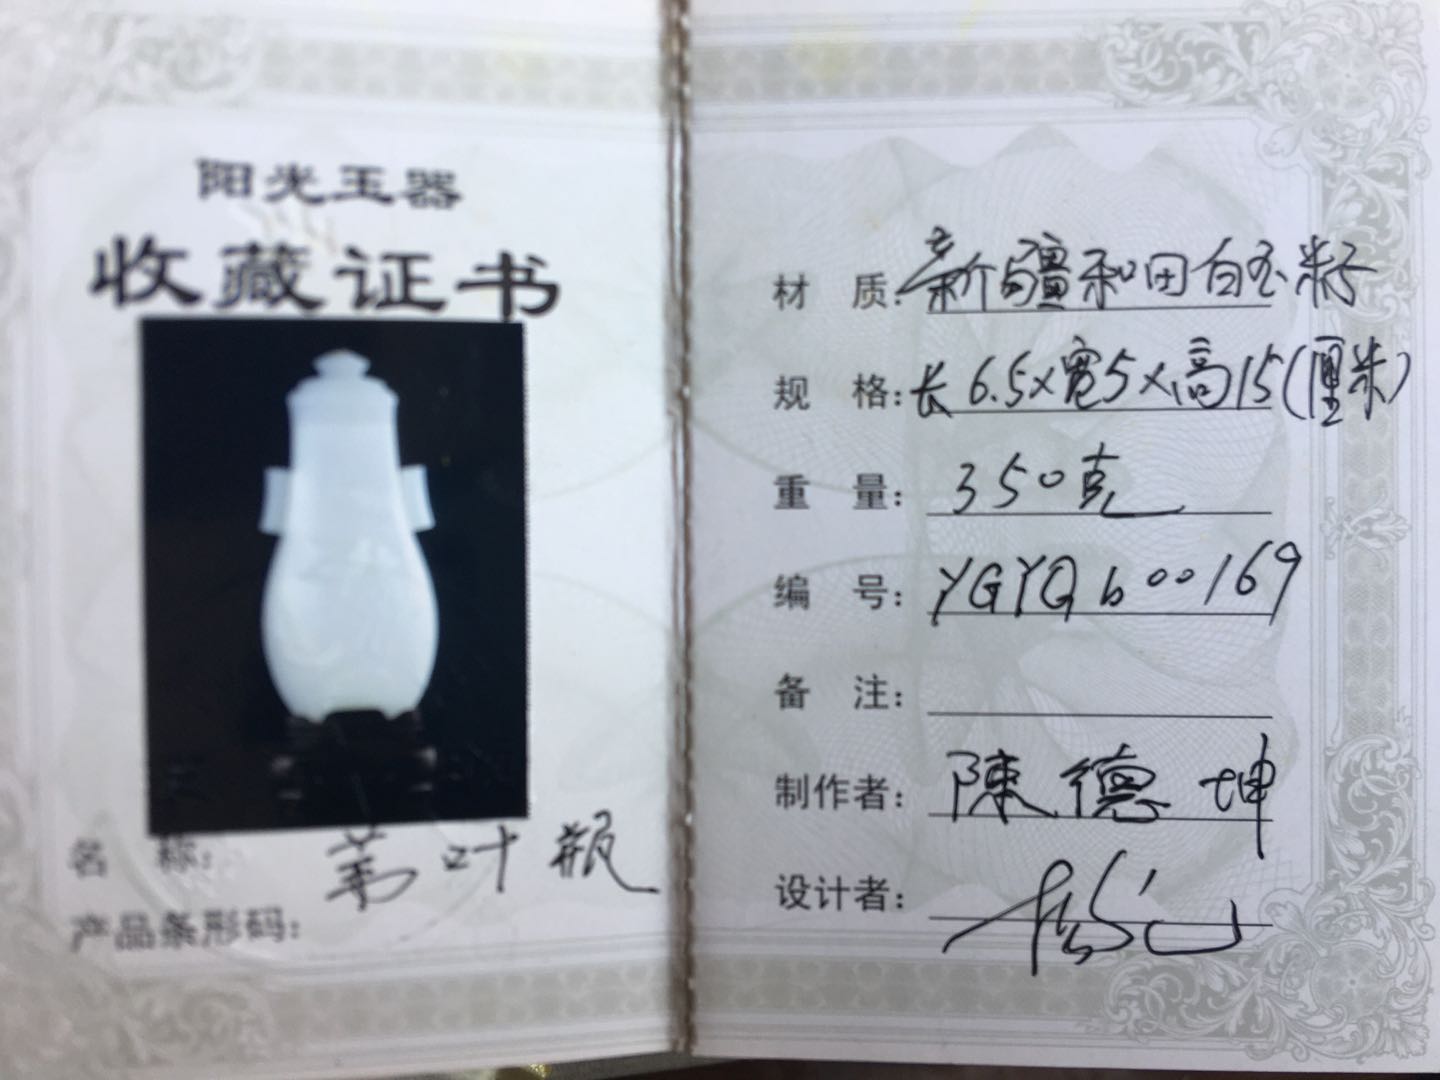 阳光玉器
收藏证书
名 称: 茅叶瓶
产品条形码:
材 质: 新疆和田白玉籽
规 格: 长6.5x宽5x高15(厘米)
重 量: 350克
编 号: YGYQb00169
备 注:
制作者: 陳德坤
设计者: